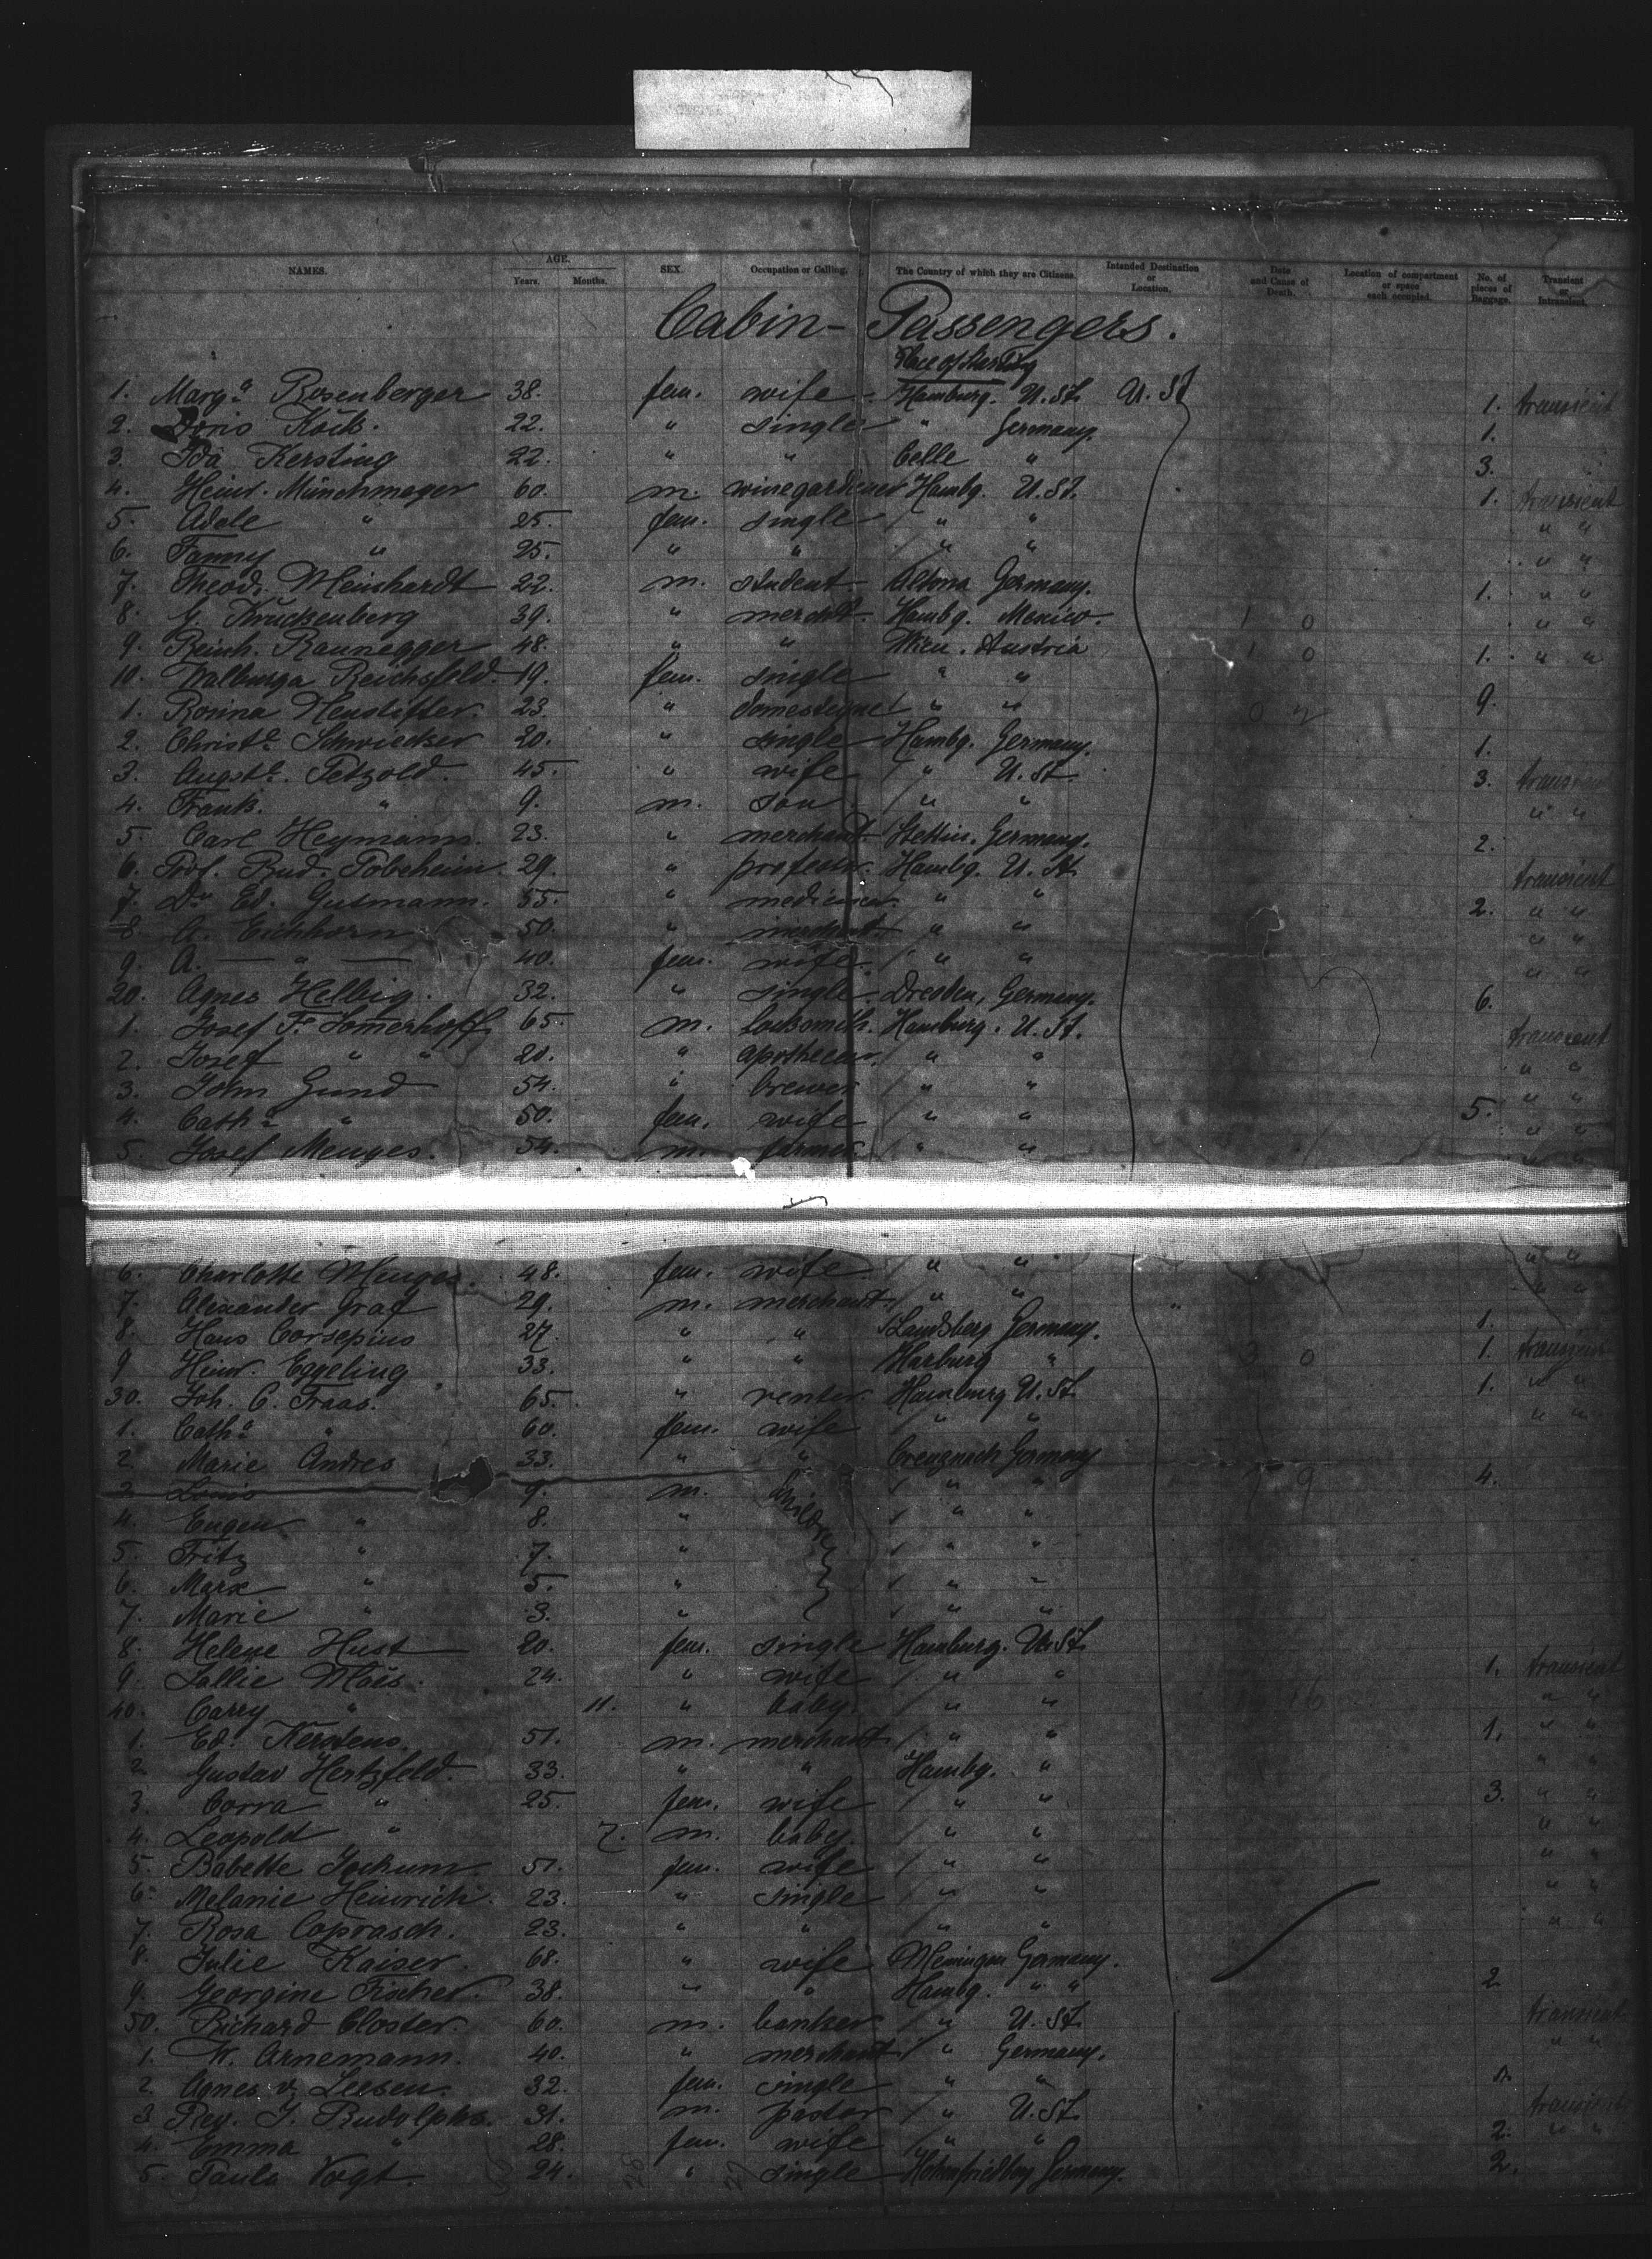 NAMES. AGE. Years. Months. SEX. Occupation or Calling. The Country of which they are Citizens. Intended Destination or Location. Date and Cause of Death. Location of compartment or space each occupied. No. of pieces of Baggage. Transient or Intransient.
Cabin - Passengers.
Place of Starting
1. Marg.a Rosenberger 38. fem. wife Hamburg. U. St. U. St 1. transient
2. Doris 22. " single " Germany. 1.
3. Ida Kersting 22. " " Celle " 3.
4. Heinr. Münchmeyer 60. m. winegardener Hambg. U. St. 1. transient
5. Adele " 25. fem. single " " " "
6. Fanny " 25. " " " " " "
7. Theod. Meinhardt 22. m. student Altona Germany. 1. " "
8. G. Kruckenberg 39. " merchdt. Hambg. Mexico. 1 0 " "
9. Reinh. Raunegger 48. " " Wien. Austria 1 0 1. " "
10. Walburga Reichsfeld 19. fem. single " " 9.
1. Rosina 23. " " "
2. Christ.e Schwiecker 20. " single Hambg. Germany. 1.
3. August.e Petzold. 45. " wife " U. St. 3. transient
4. Frank. " 9. m. son " " " "
5. Carl Heymann. 23. " merchant Stettin. Germany. 2.
6. Prof. Rud. 29. " professor. Hambg. U. St. transient
7. Dr. Ed. Gutmann. 55. " " " 2. " "
8. A. Eichhorn 50. " merchant " " " "
9. A. — " — 40. fem. wife. " " " "
20. Agnes Helbig. 32. " single. Dresden, Germany. 6.
1. Josef Fr. Somerhoff 65. m. locksmith. Hamburg. U. St. transient
2. Josef " " 20. " " " " "
3. John Gund 54. " brewer " " " "
4. Cath.a " 50. fem. wife " " 5. " "
5. Josef Menges. 54. m. farmer. " " " "
6. Charlotte Menges. 48. fem. wife " " " "
7. Alexander Graf 29. m. merchant " " " "
8. Hans Corsepius 27. " " Landsberg Germany. 1.
9 Heinr. Eggeling 33. " " Harburg " 3 0 1. transient
30. Joh. C. Fraas. 65. " renter. Hamburg U. St. 1. " "
1. Cath.a " 60. fem. wife " " " "
2 Marie Andres 33. " " Creuznach Germany
3 Louis 9. m. children " " 7 9 4.
4. Eugen " 8. " " "
5. Fritz " 7. " " "
6. Marx " 5. " " "
7. Marie " 3. " " "
8. Helene Hust 20. fem. single Hamburg. U. St.
9. Sallie Maës. 24. " wife " " 1. transient
40. Carry " 11. " baby. " " " "
1. Ed. Kerstens. 51. m. merchant " " 1. " "
2. Gustav Hertzfeld. 33. " " Hambg. " " "
3. Corra " 25. fem. wife " " 3. " "
4. Leopold " 7. m. baby. " " " "
5. Babette Jockum. 51. fem. wife " " " "
6. Melanie Heinrich. 23. " single " " " "
7. Rosa Coprasch. 23. " " " " " "
8. Julie Kaiser. 68. " wife Meiningen Germany.
9. Georgine Fischer. 38. " " Hambg. " " 2.
50. Richard Closter. 60. m. banker " U. St. transient
1. W. Arnemann. 40. " merchant " Germany. " "
2. Agnes v. Leesen. 32. fem. single " "
3. Rev. J. Rudolphs. 31. m. pastor " U. St. transient
4. Emma " 28. fem. wife " " 2. " "
5. Paula Vogt. 24. " single Hohenfriedberg Germany. 2.